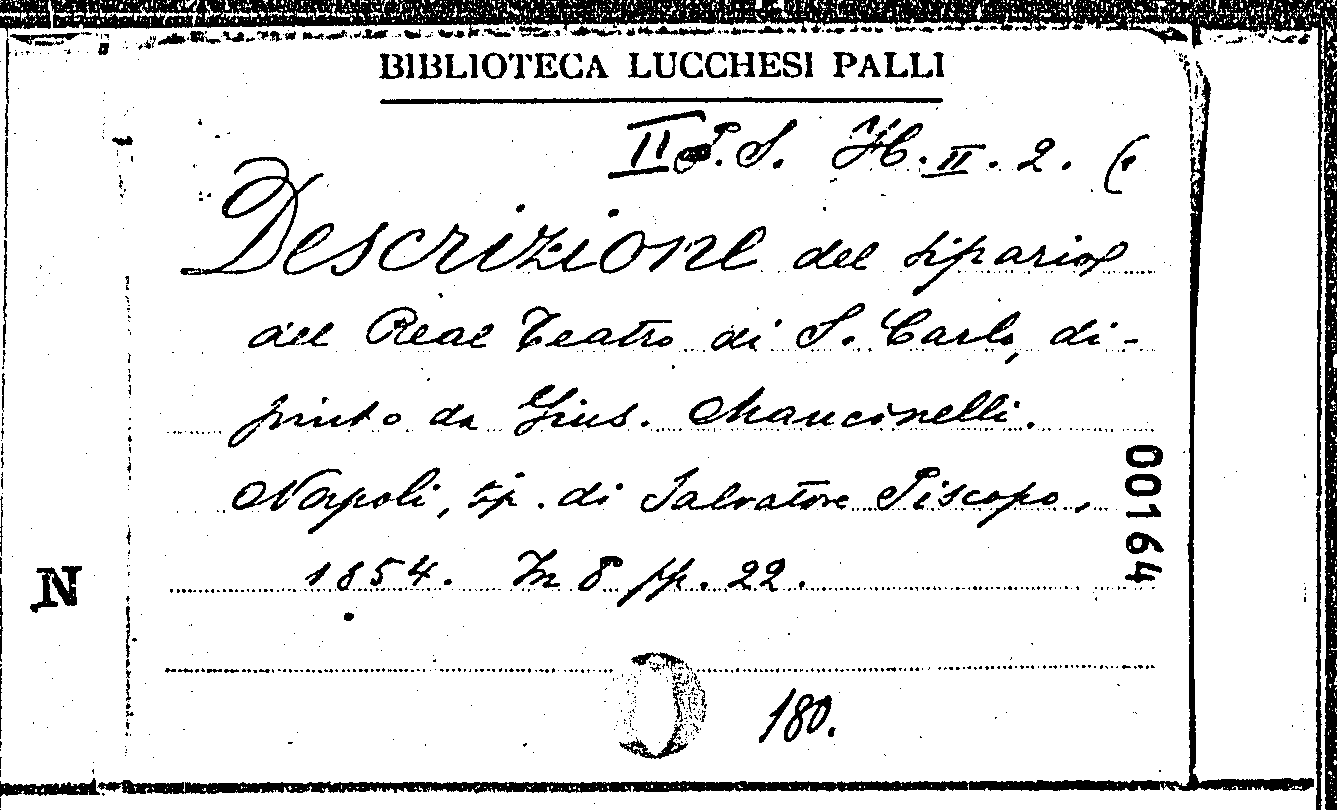 BIBLIOTECA LUCCHESI PALLI
II P.S. H.II.2. (
Descrizione del sipario
del Real Teatro di S. Carlo, di-
pinto da Gius. Mancinelli.
Napoli, tip. di Salvatore Piscopo,
1854. In 8 pp. 22.
00164
N
180.